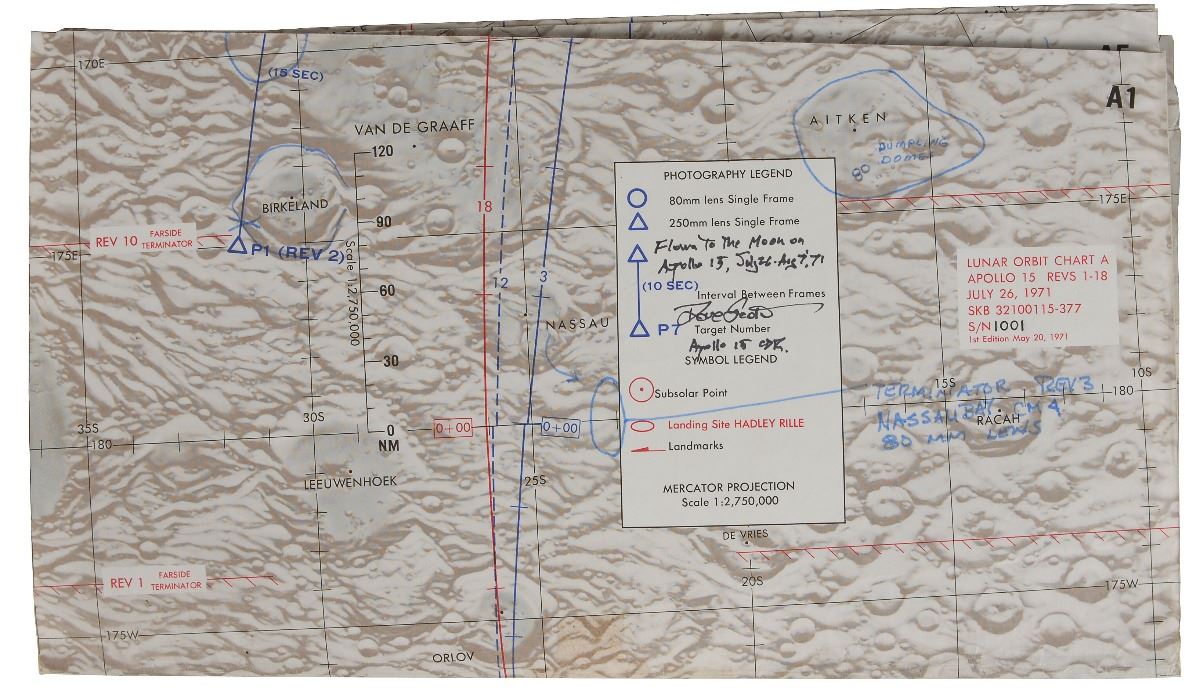 A5
A1
170E
(15 SEC)
VAN DE GRAAFF
AITKEN
DUMPLING
DOMES
80
120
BIRKELAND
90
18
175E
REV 10 FARSIDE TERMINATOR
P1 (REV 2)
175E
Scale 1:2,750,000
60
12
3
NASSAU
30
30S
35S
0+00
0+00
0
NM
180
LEEUWENHOEK
25S
PHOTOGRAPHY LEGEND
80mm lens Single Frame
250mm lens Single Frame
Flown To The Moon on
Apollo 15, July 26-Aug 7, '71
(10 SEC)
Interval Between Frames
Dave Scott
P7 Target Number
Apollo 15 CDR.
SYMBOL LEGEND
Subsolar Point
Landing Site HADLEY RILLE
Landmarks
MERCATOR PROJECTION
Scale 1:2,750,000
LUNAR ORBIT CHART A
APOLLO 15 REVS 1-18
JULY 26, 1971
SKB 32100115-377
S/N 1001
1st Edition May 20, 1971
10S
15S
180
TERMINATOR REV3
NASSAU BAY CM4
RACAH
80 MM LENS
DE VRIES
20S
175W
REV 1 FARSIDE TERMINATOR
175W
ORLOV